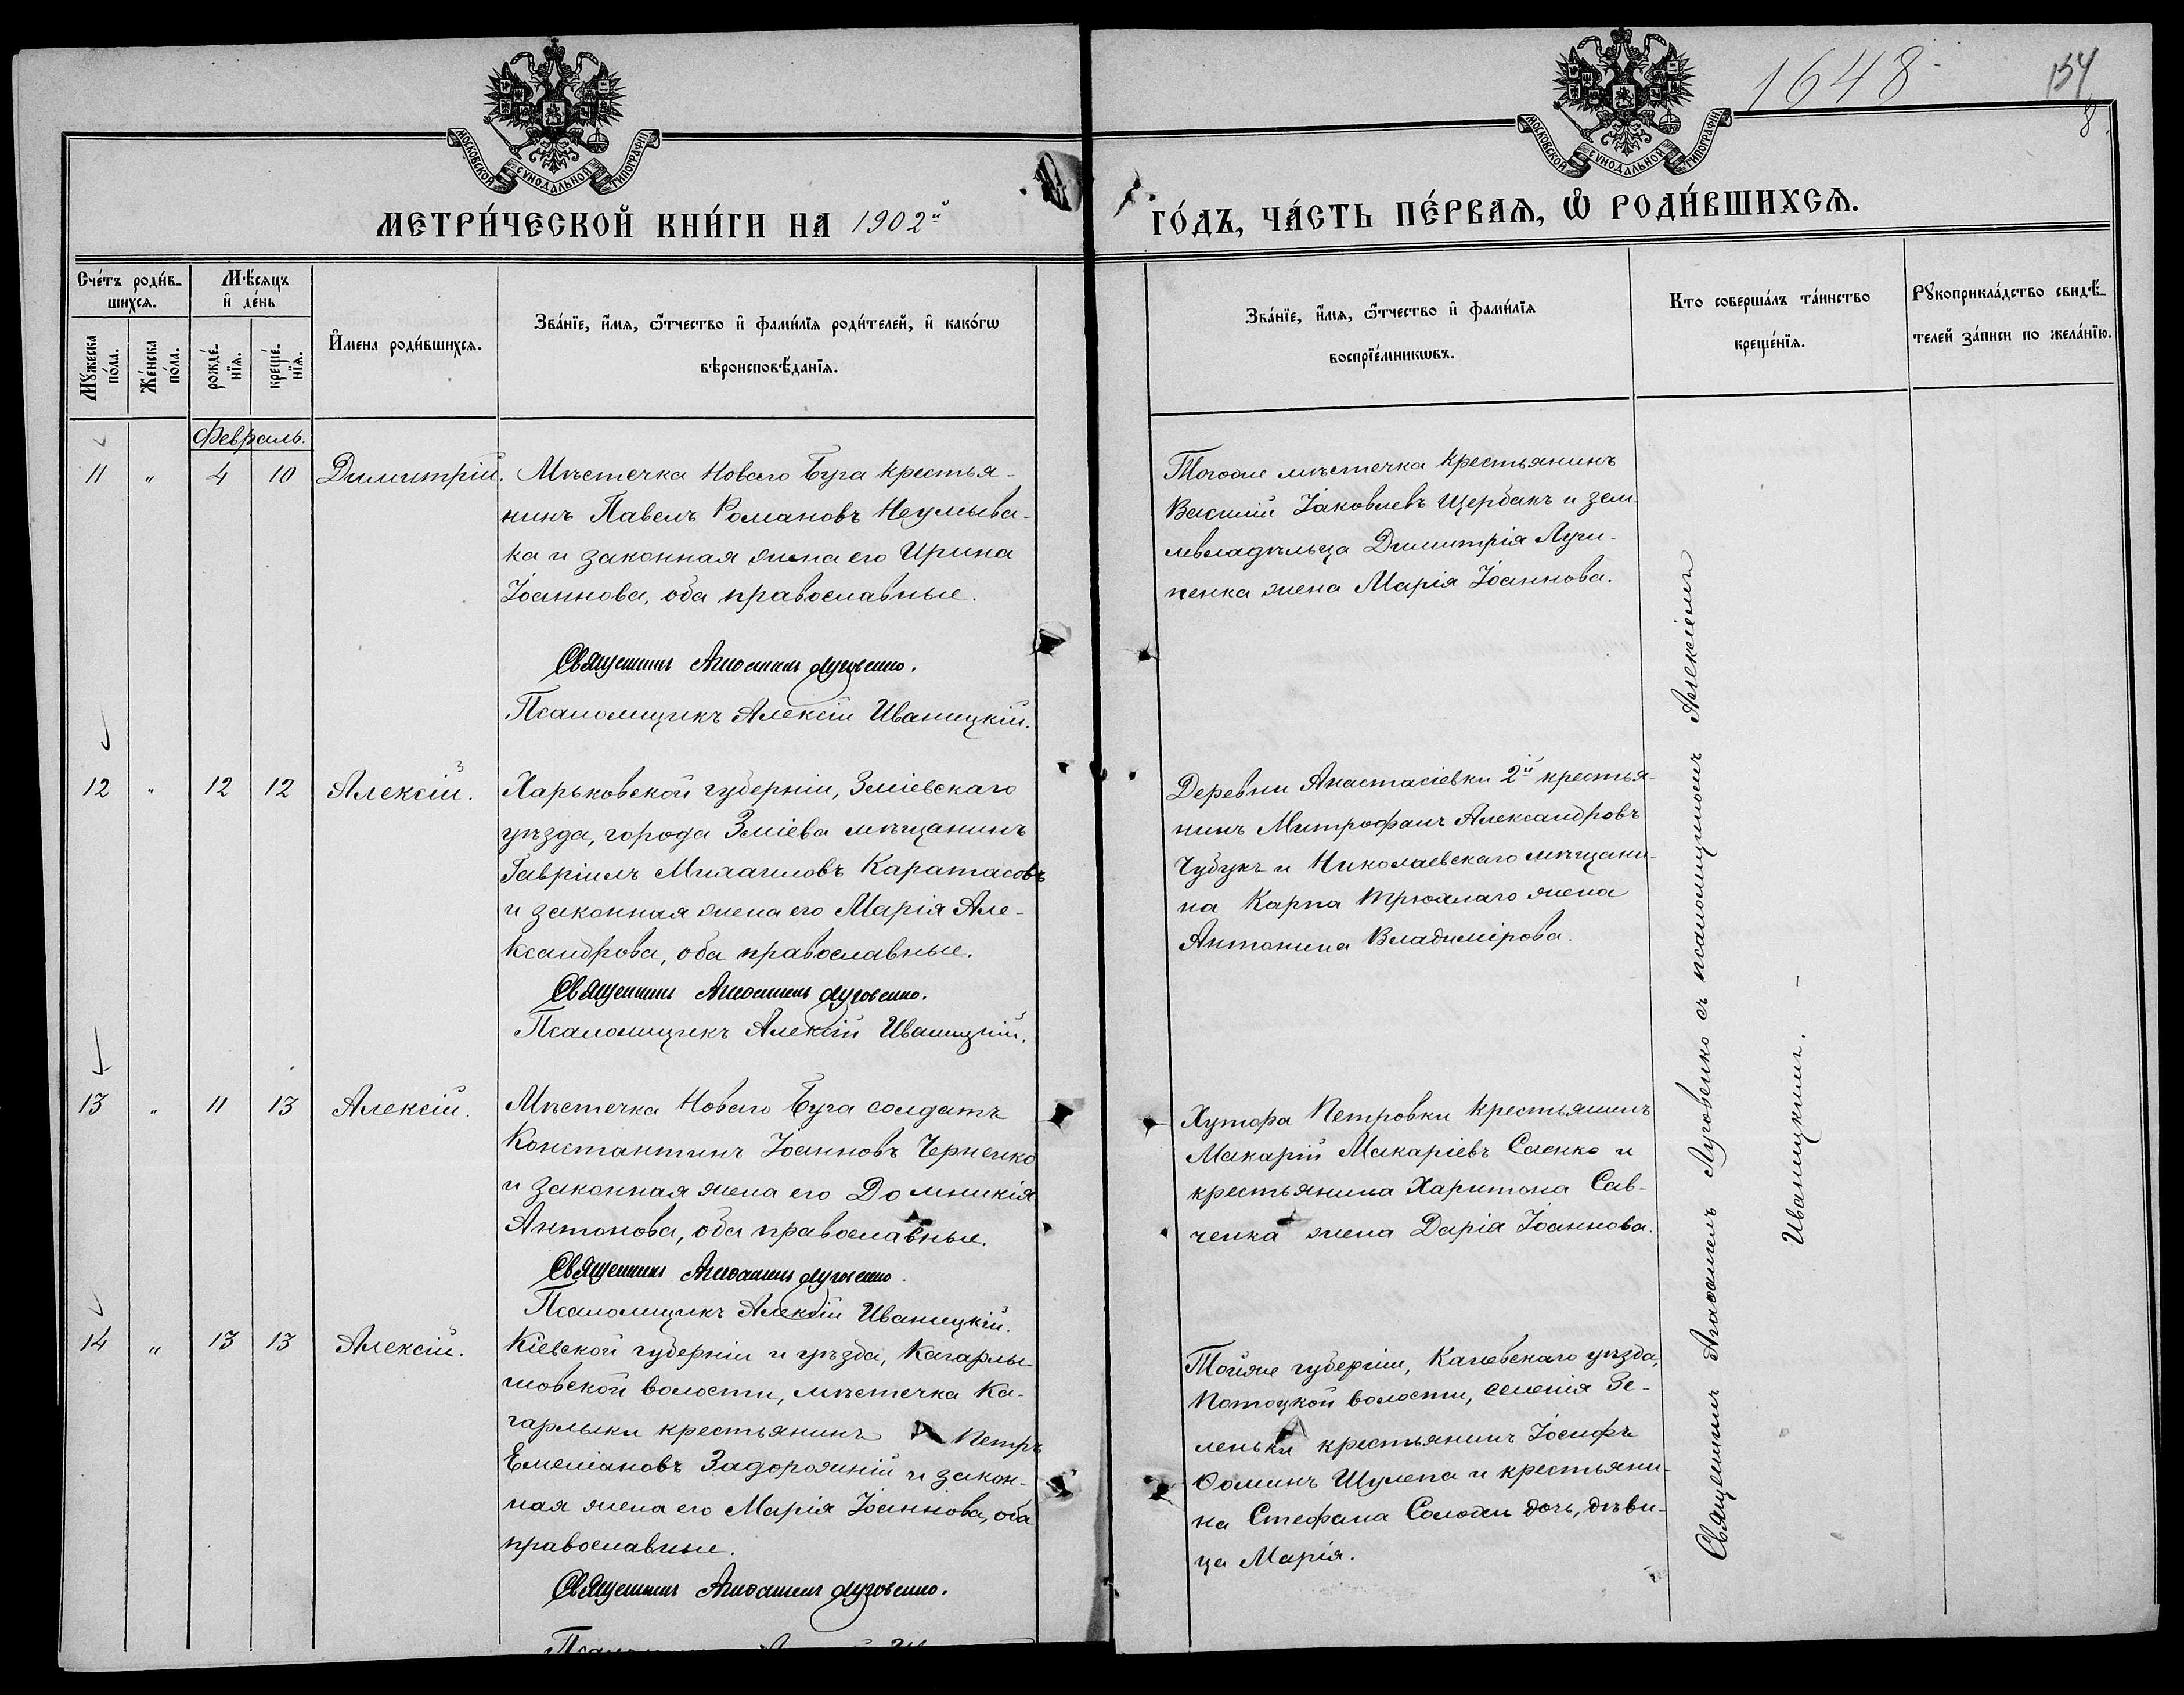 1648
154
8
МОСКОВСКОЙ СУНОДАЛЬНОЙ ТИПОГРАФІИ
МОСКОВСКОЙ СУНОДАЛЬНОЙ ТИПОГРАФІИ
МЕТРИ́ЧЕСКОЙ КНИ́ГИ НА 1902й
ГО́ДЪ, ЧА́СТЬ ПЕ́РВАѦ, Ѡ҆ РОДИ́ВШИХСѦ.
Сче́тъ роди́в-
шихсѧ.
Мꙋ́жеска по́ла.
Же́нска по́ла.
Мѣ́сѧцъ и҆ де́нь
рожде́-нїѧ.
креще́-нїѧ.
И҆мена роди́вшихсѧ.
Зва́нїе, и҆́мѧ, ѻ҆́тчество и҆ фами́лїѧ роди́телей, и҆ како́гѡ
вѣроисповѣ́данїѧ.
Зва́нїе, и҆́мѧ, ѻ҆́тчество и҆ фами́лїѧ
воспрїе́мникѡвъ.
Кто соверша́лъ та́инство
креще́нїѧ.
Рꙋкоприкла́дство свидѣ́-
телей за́писи по жела́нїю.
Февраль.
11 " 4 10 Димитрій. Мѣстечка Новаго Буга крестья-
нинъ Павелъ Романовъ Неумыва-
ка и законная жена его Ирина
Іоаннова, оба православные.
Священникъ Агаѳангелъ Луговенко.
Псаломщикъ Алексій Иваницкій.
Тогоже мѣстечка крестьянинъ
Василій Іаковлевъ Щербакъ и зем-
левладѣльца Димитрія Лучи-
ненка жена Марія Іоаннова.
12 " 12 12 Алексій. Харьковской губерніи, Зміевскаго
уѣзда, города Зміева мѣщанинъ
Гавріилъ Михаиловъ Каратасовъ
и законная жена его Марія Але-
ксандрова, оба православные.
Священникъ Агаѳангелъ Луговенко.
Псаломщикъ Алексій Иваницкій.
Деревни Анастасіевки 2й крестья-
нинъ Митрофанъ Александровъ
Чубукъ и Николаевскаго мѣщани-
на Карпа Трюхлаго жена
Антонина Владимірова.
13 " 11 13 Алексій. Мѣстечка Новаго Буга солдатъ
Константинъ Іоанновъ Черненко
и законная жена его Домникія
Антонова, оба православные.
Священникъ Агаѳангелъ Луговенко.
Псаломщикъ Алексій Иваницкій.
Хутора Петровки крестьянинъ
Макарій Макаріевъ Саенко и
крестьянина Харитона Сав-
ченка жена Дарія Іоаннова.
14 " 13 13 Алексій. Кіевской губерніи и уѣзда, Кагарлы-
ковской волости, мѣстечка Ка-
гарлыка крестьянинъ Петръ
Емеліановъ Задорожній и закон-
ная жена его Марія Іоаннова, оба
православные.
Священникъ Агаѳангелъ Луговенко.
Тойже губерніи, Каневскаго уѣзда,
Потоцкой волости, селенія Зе-
леньки крестьянинъ Іосифъ
Ѳоминъ Шулепа и крестьяни-
на Стефана Солодки дочь, дѣви-
ца Марія.
Священникъ Агаѳангелъ Луговенко съ псаломщикомъ Алексіемъ
Иваницкимъ. —